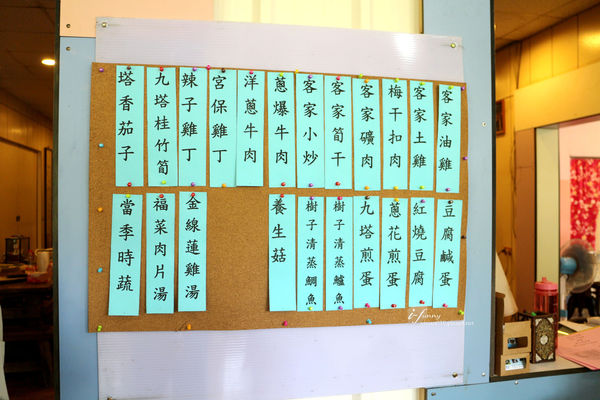 客家油雞
客家土雞
梅干扣肉
客家礦肉
客家筍干
客家小炒
蔥爆牛肉
洋蔥牛肉
宮保雞丁
辣子雞丁
九塔桂竹筍
塔香茄子
豆腐鹹蛋
紅燒豆腐
蔥花煎蛋
九塔煎蛋
樹子清蒸鱸魚
樹子清蒸鯛魚
養生菇
金線蓮雞湯
福菜肉片湯
當季時蔬
i-funny